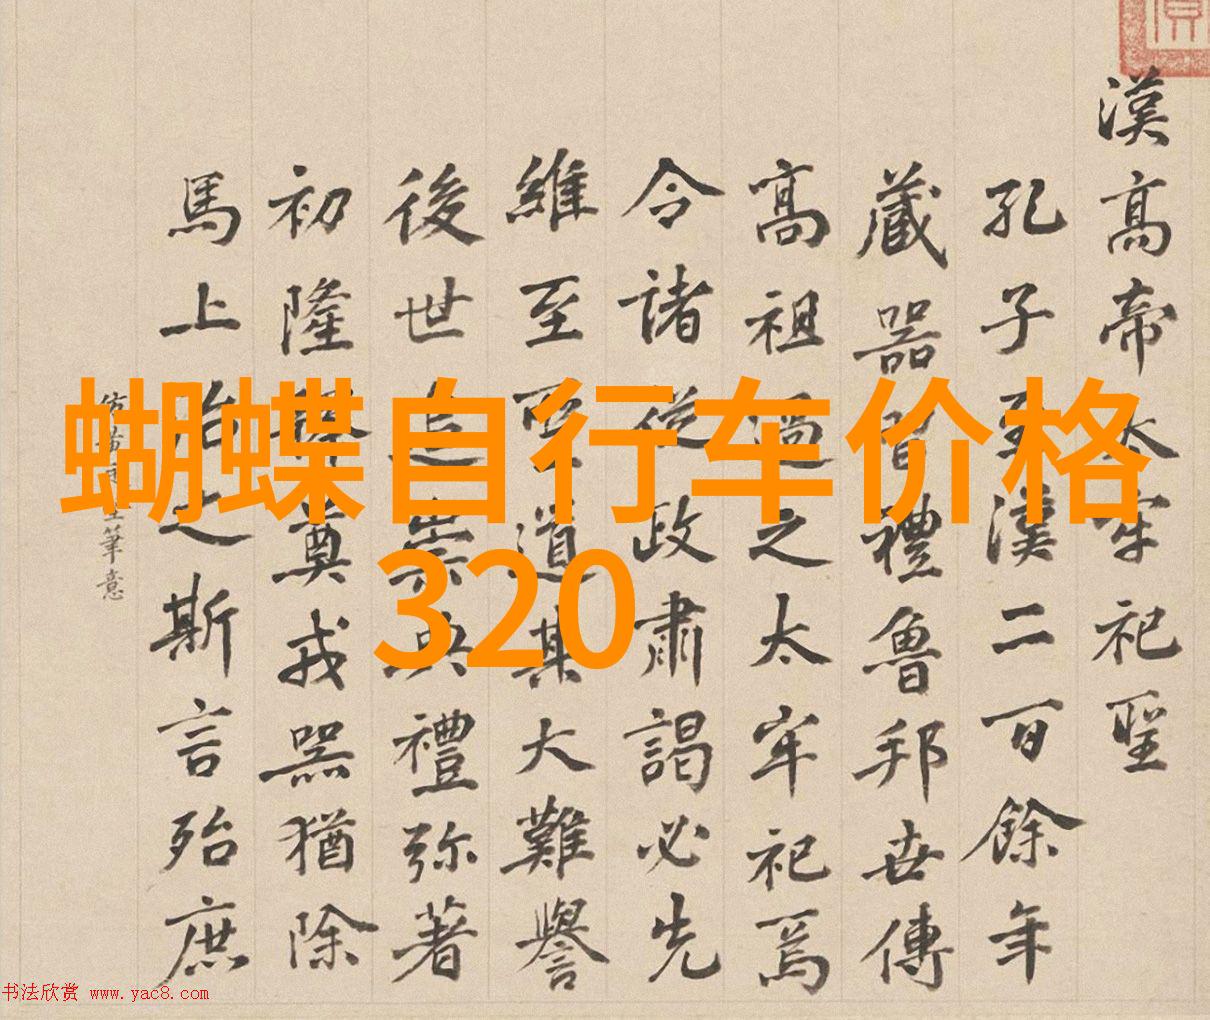 漢高帝太牢祀聖
孔子至漢二百餘年
藏器習禮魯邦世傳
高祖過之太牢祀焉
令諸從政肅謁必先
維至聖道其大難譽
後世追崇典禮弥著
初隆奠戎器猶除
馬上治之斯言殆庶
筆意
蝴蝶自行车价格
320
书法欣赏 www.yac8.com